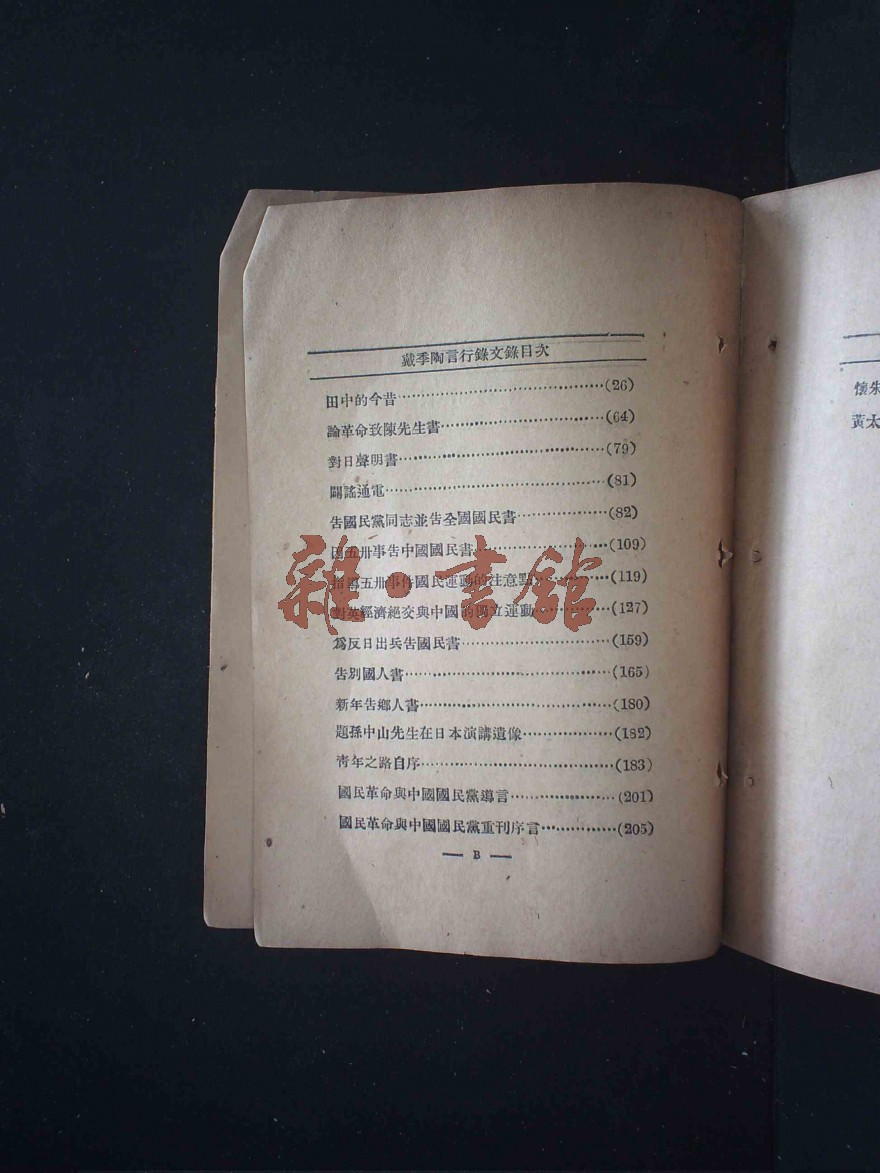 戴季陶言行錄文錄目次
田中的今昔……………………………(26)
論革命致陳先生書……………………(64)
對日聲明書……………………………(79)
闢謠通電………………………………(81)
告國民黨同志並告全國國民書………(82)
因五卅事告中國國民書………………(109)
指導五卅事件國民運動的注意點……(119)
對英經濟絕交與中國的獨立運動……(127)
爲反日出兵告國民書…………………(159)
告別國人書……………………………(165)
新年告鄉人書…………………………(180)
題孫中山先生在日本演講遺像………(182)
靑年之路自序…………………………(183)
國民革命與中國國民黨導言…………(201)
國民革命與中國國民黨重刊序言……(205)
— B —
懷朱
黃太
雜·書館